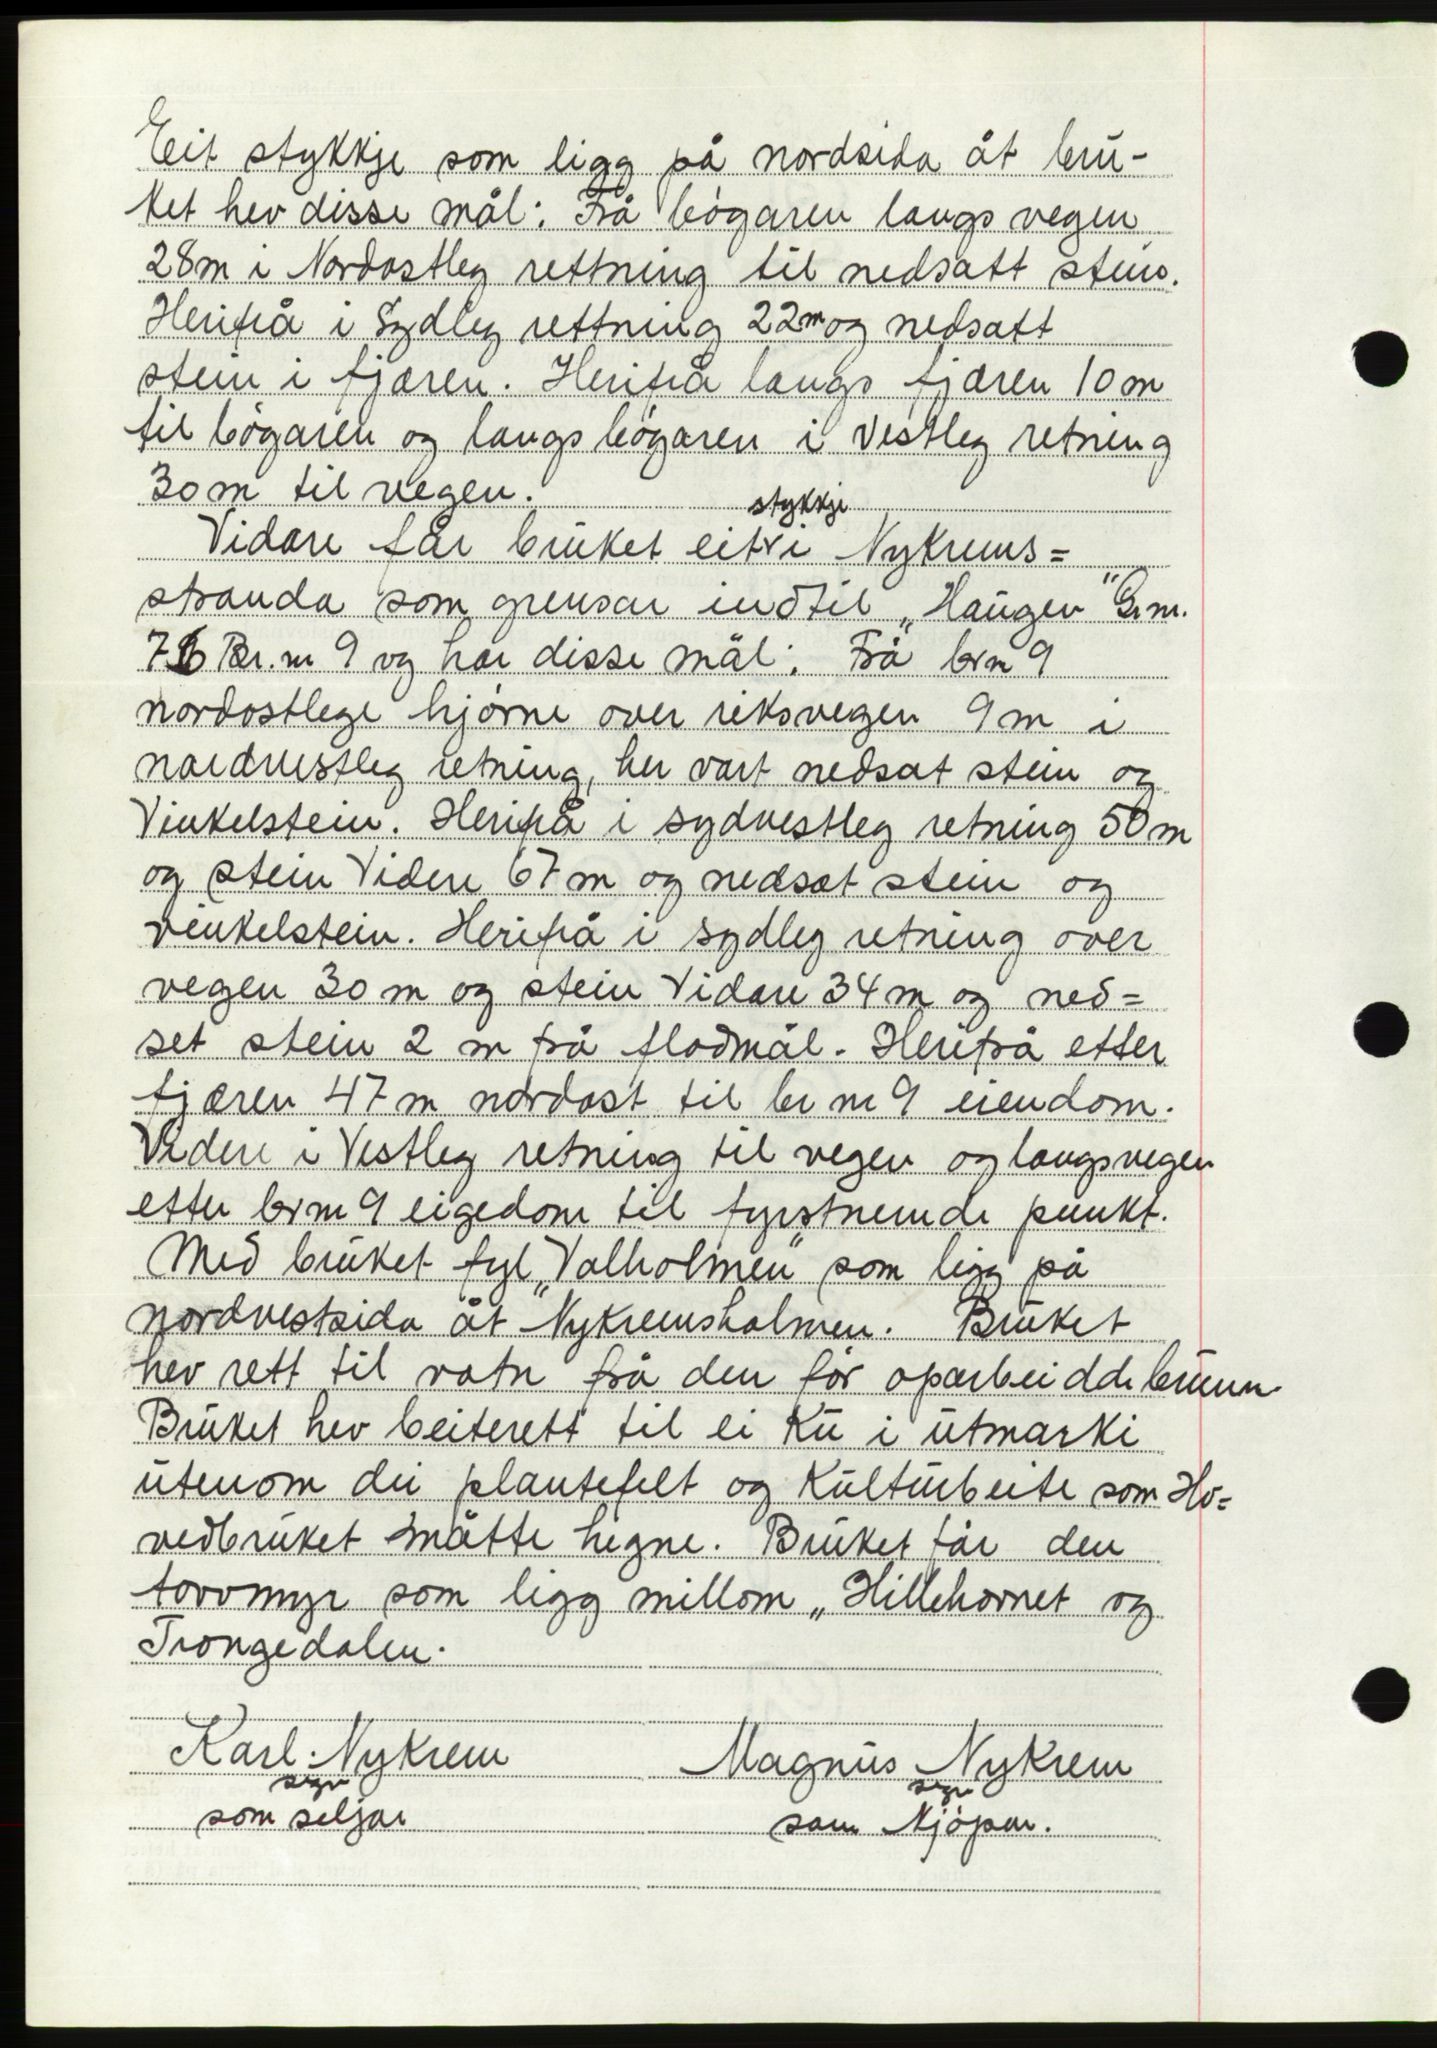 Eit stykkje som ligg på nordsida åt bru-
ket hev disse mål: Frå bøgaren langs vegen
28m i Nordostleg rettning til nedsatt stein.
Herifrå i Sydleg rettning 22m og nedsatt
stein i fjæren. Herifrå langs fjæren 10m
til bøgaren og langs bøgaren i vestleg retning
30m til vegen.
Vidare får bruket eit stykkje i Nykrems=
stranda som grensar indtil „Haugen" Gr.nr.
76 Br.nr 9 og har disse mål: Frå brn 9
nordostlege hjørne over riksvegen 9m i
nordvestleg retning, her vart nedsat stein og
Vinkelstein. Herifrå i sydvestleg retning 50m
og stein Videre 67m og nedsat stein og
vinkelstein. Herifrå i sydleg retning over
vegen 30m og stein Vidare 34m og ned=
set stein 2 m frå flodmål. Herifrå etter
fjæren 47m nordost til br nr 9 eiendom.
Videre i Vestleg retning til vegen og langsvegen
etter brnr 9 eigedom til fyrstnemde punkt.
Med bruket fyl „Valholmen" som ligg på
nordvestsida åt Nykremsholmen. Bruket
hev rett til vatn frå den før oparbeidde brunn.
Bruket hev beiterett til ei Ku i utmarki
utenom dei plantefelt og Kulturbeite som Ho=
vedbruket måtte hegne. Bruket får den
torvmyr som ligg millom „Hillehornet og
Trongedalen.
Karl Nykrem Magnus Nykrem
sign sign
som seljar som Kjøpar.